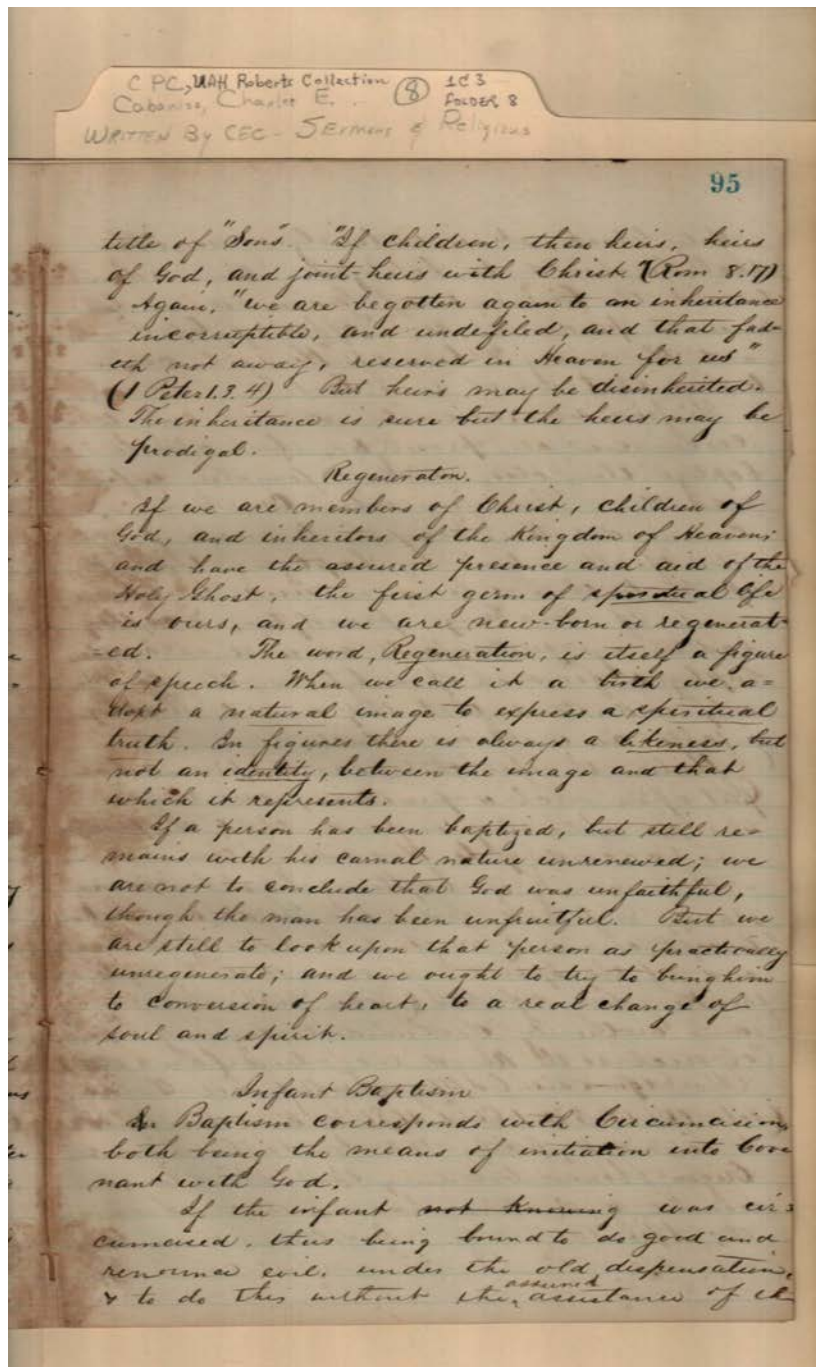 C PC, UAH Roberts Collection
Cabaniss, Charles E.
8
1C3
FOLDER 8
WRITTEN BY CEC - SERMONS & Religious
95
title of "Sons". "If children, then heirs, heirs
of God, and joint-heirs with Christ." (Rom 8.17)
Again, "we are begotten again to an inheritance
incorruptible, and undefiled, and that fad-
eth not away, reserved in Heaven for us"
(1 Peter 1.3.4) But heirs may be disinherited.
The inheritance is sure but the heirs may be
prodigal.
Regeneraton.
If we are members of Christ, children of
God, and inheritors of the Kingdom of Heaven;
and have the assured presence and aid of the
Holy Ghost, the first germ of spiritual life
is ours, and we are new-born or regenerat-
-ed. The word, Regeneration, is itself a figure
of speech. When we call it a birth we a=
dopt a natural image to express a spiritual
truth. In figures there is always a likeness, but
not an identity, between the image and that
which it represents.
If a person has been baptized, but still re=
mains with his carnal nature unrenewed; we
are not to conclude that God was unfaithful,
though the man has been unfruitful. But we
are still to look upon that person as practically
unregenerate; and we ought to try to bring him
to conversion of heart, to a real change of
soul and spirit.
Infant Baptism
In Baptism corresponds with Circumcision,
both being the means of initiation into Cove
nant with God.
If the infant not knowing was cir=
cumcised, thus being bound to do good and
renounce evil, under the old dispensation,
& to do this without the assured assistance of the